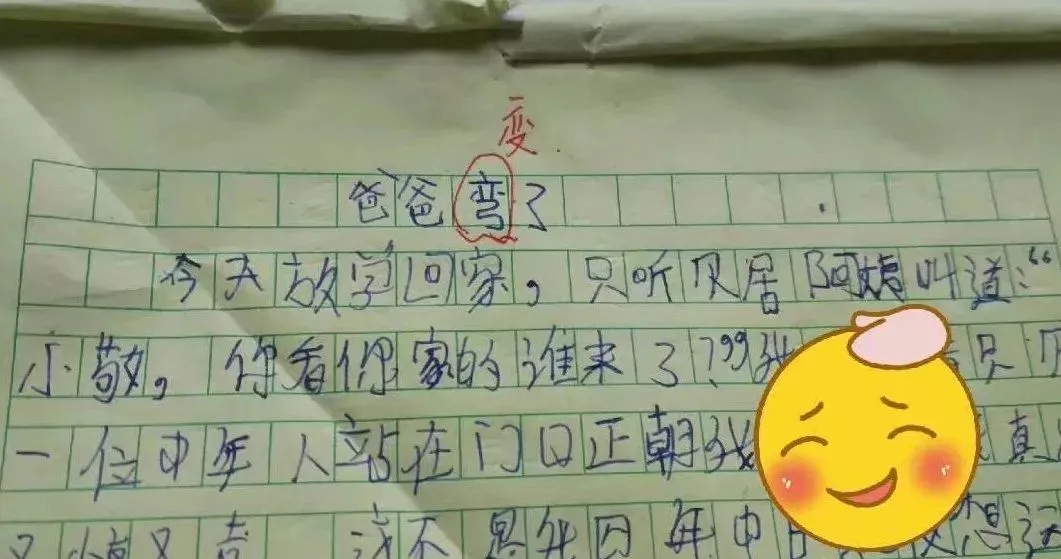 变
爸爸弯了
今天放学回家，只听见居阿姨叫道：“
小敬，你看你家的谁来了？”我只见
一位中年人站在门口正朝我真
又惊又喜，这不是